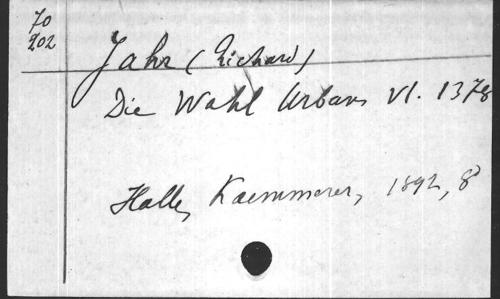 70
202
Jahr (Richard)
Die Wahl Urbans VI. 1378
Halle, Kaemmerer, 1892, 8°